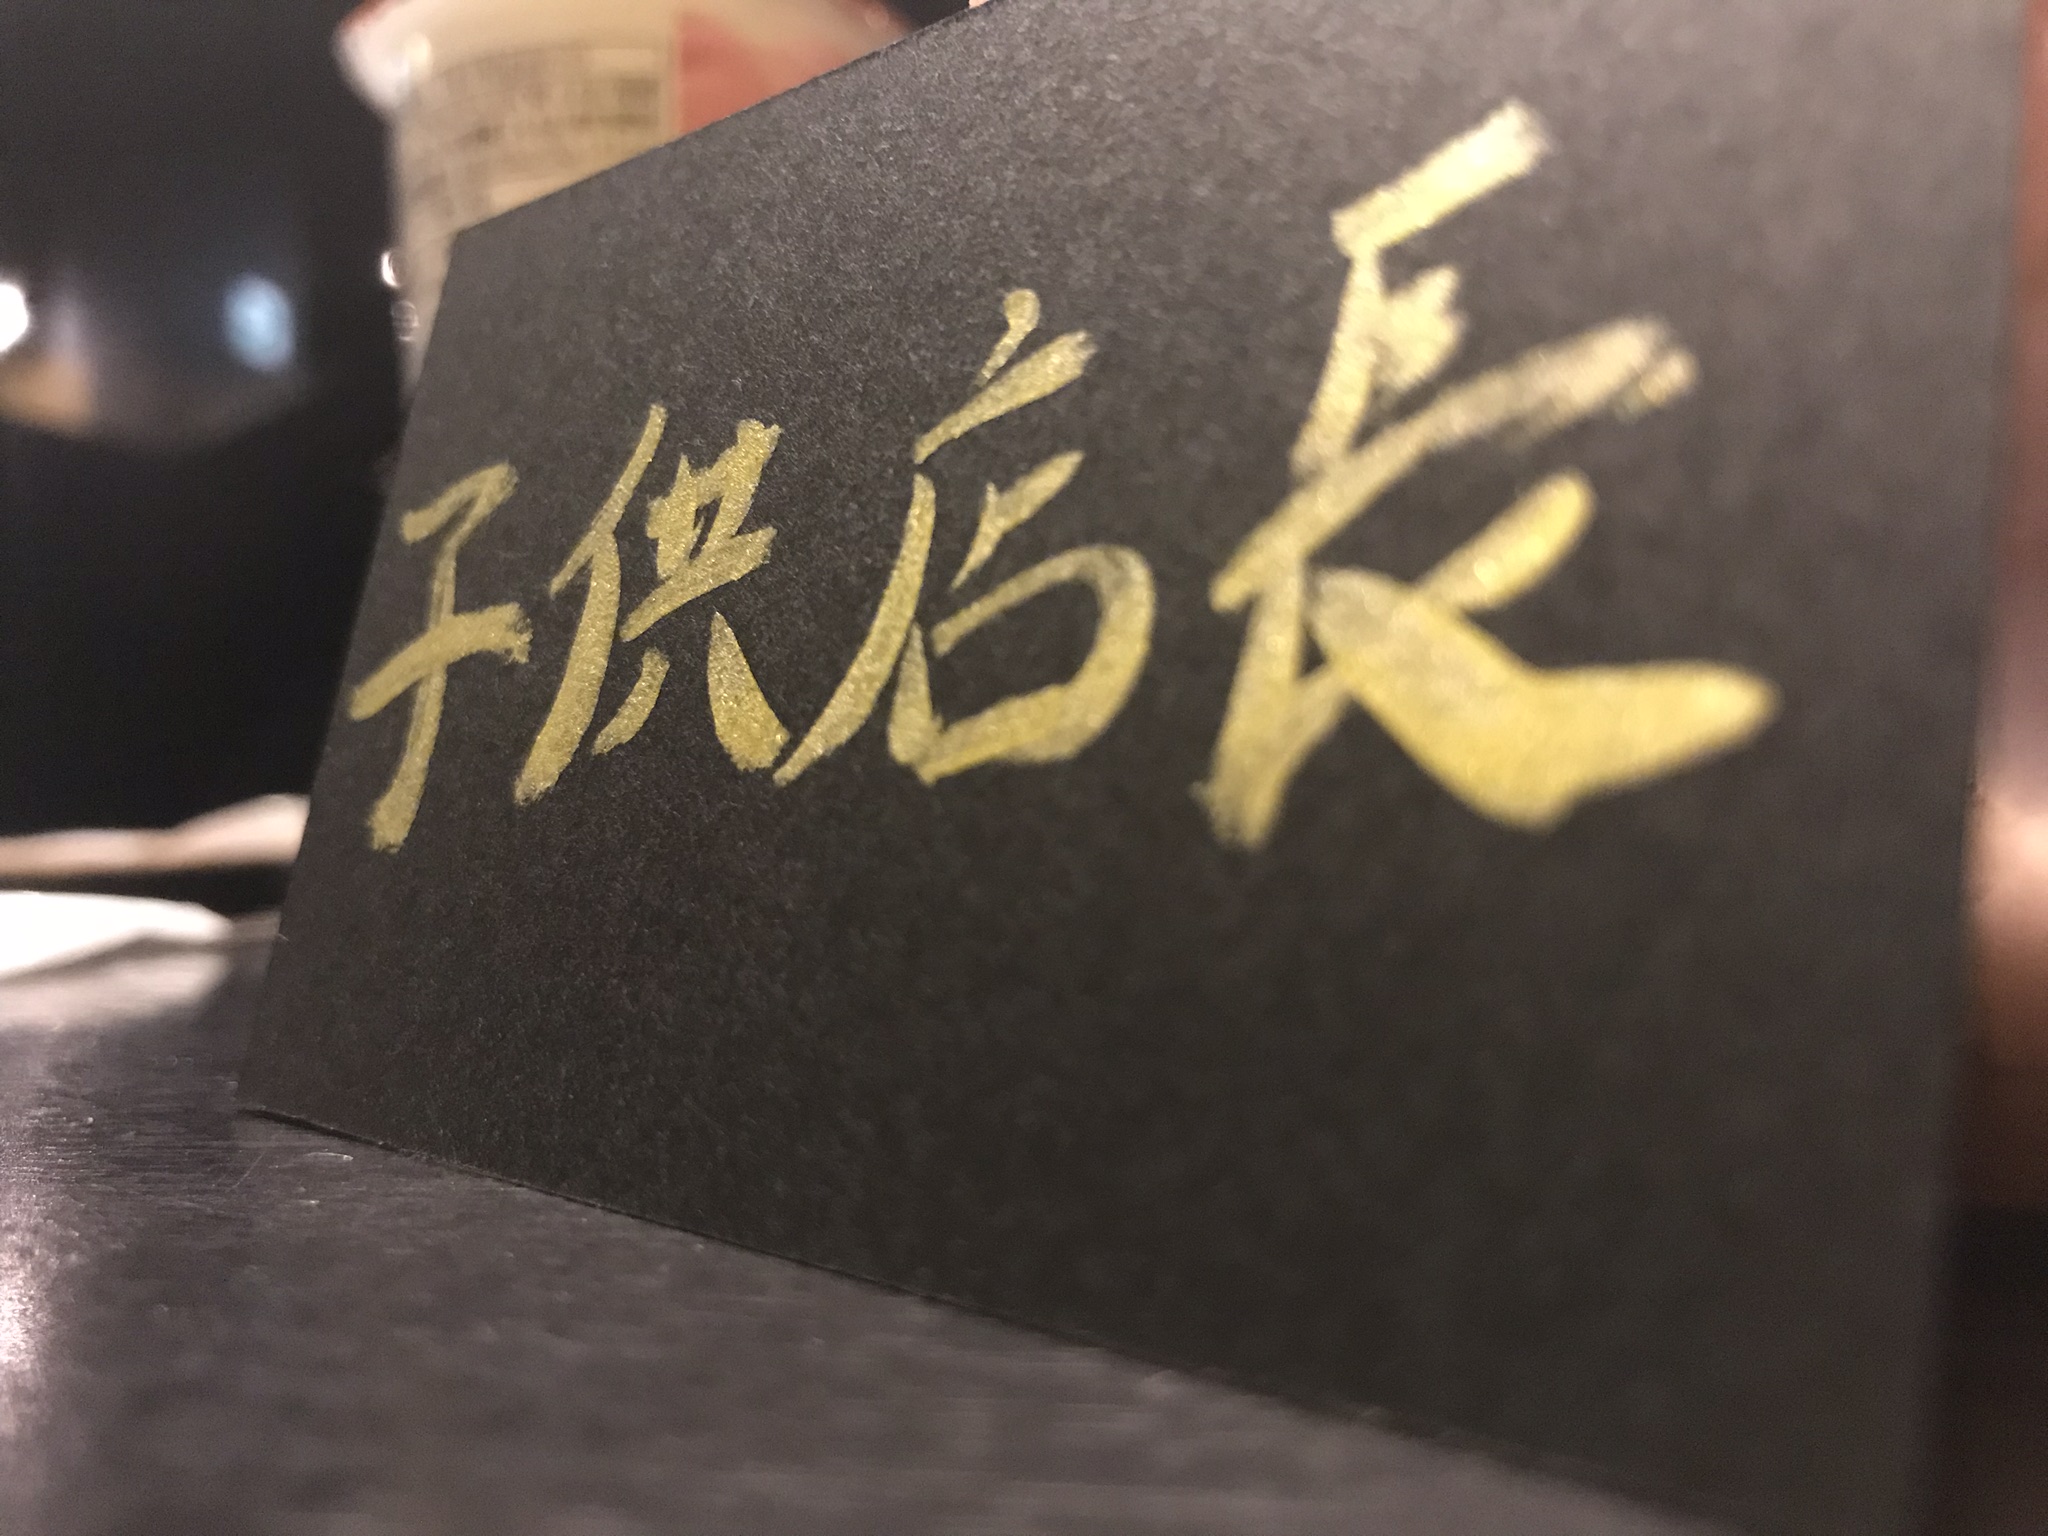 子供店長